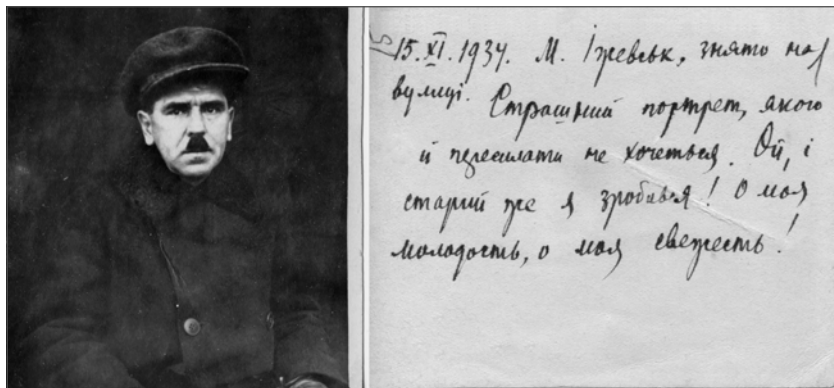 15.XI.1934. М. Іжевськ, знято на
вулиці. Страшний портрет, якого
й пересилати не хочеться. Ой, і
старий же я зробився! О моя
молодость, о моя свежесть!